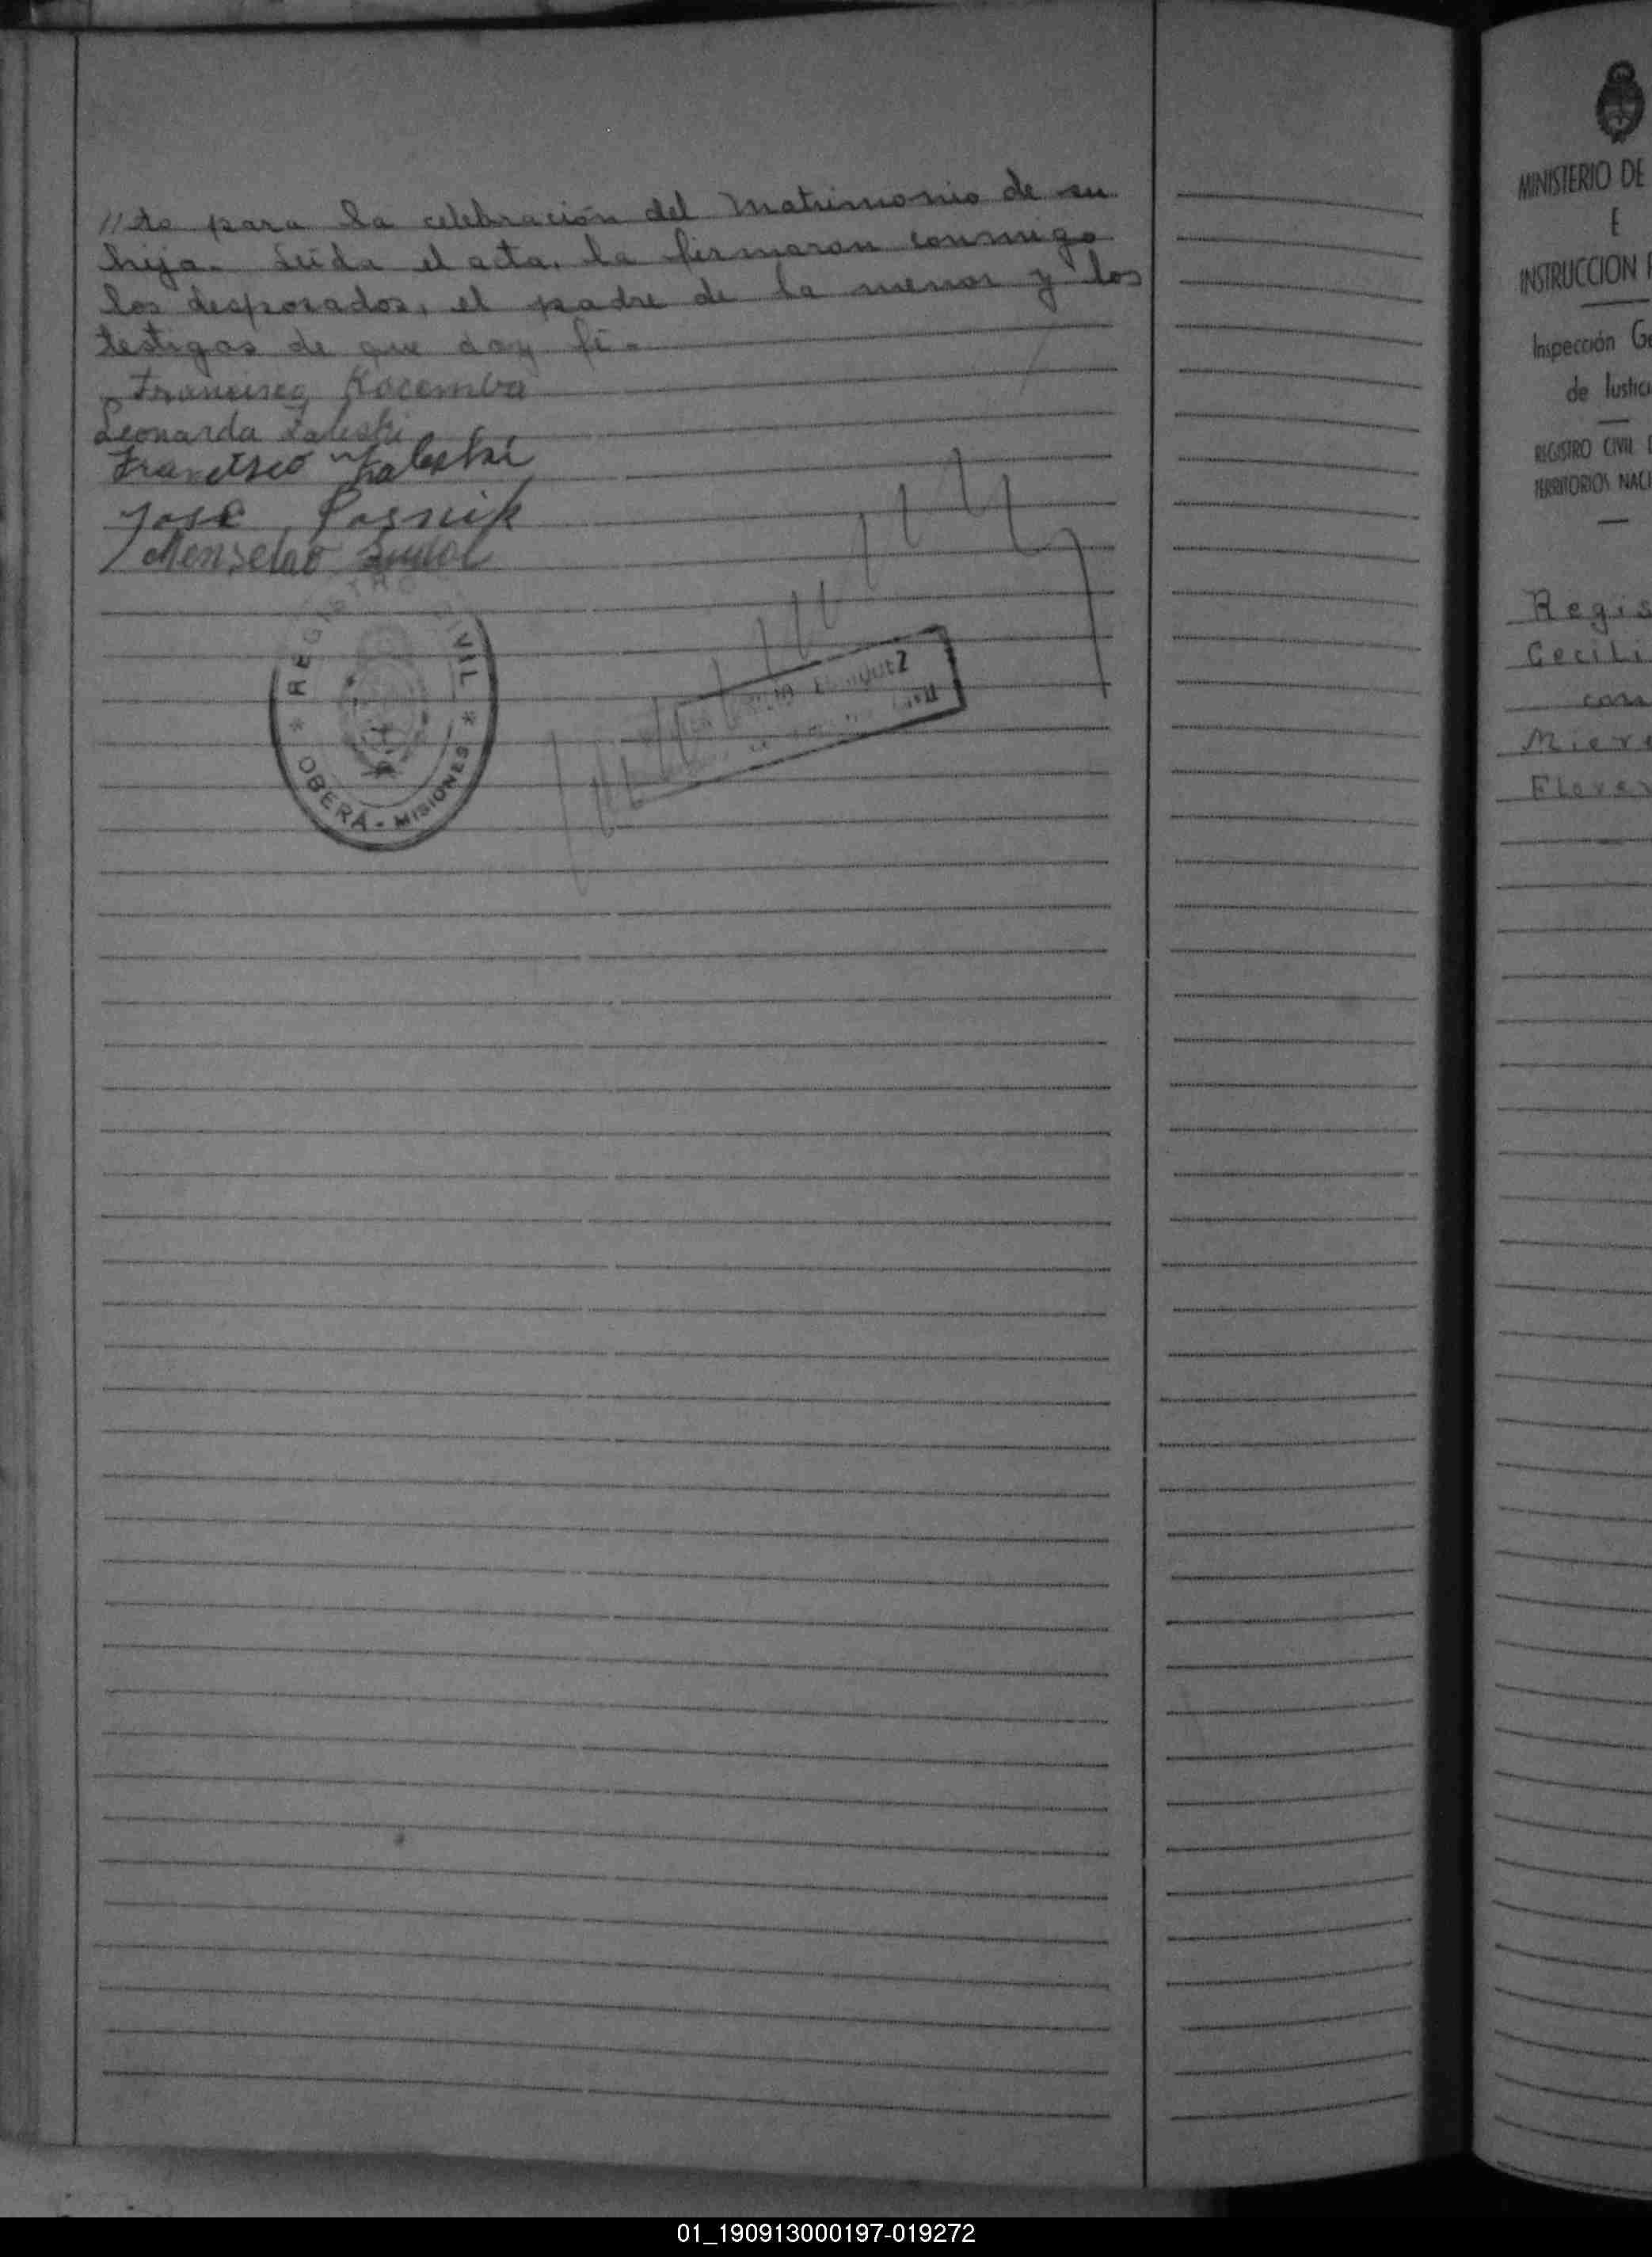 //to para la celebración del matrimonio de su
hija. Leída el acta, la firmaron conmigo
los desposados, el padre de la menor y los
testigos de que doy fé.
Francisco Kocemba
Leonarda Zaleski
Francisco Zaleski
José Posnik
REGISTRO CIVIL
* OBERÁ - MISIONES *
MINISTERIO DE
E
INSTRUCCION
Inspección Ge
de Justici
REGISTRO CIVIL
TERRITORIOS NACI
Regis
Cecili
con
Flores
01_190913000197-019272